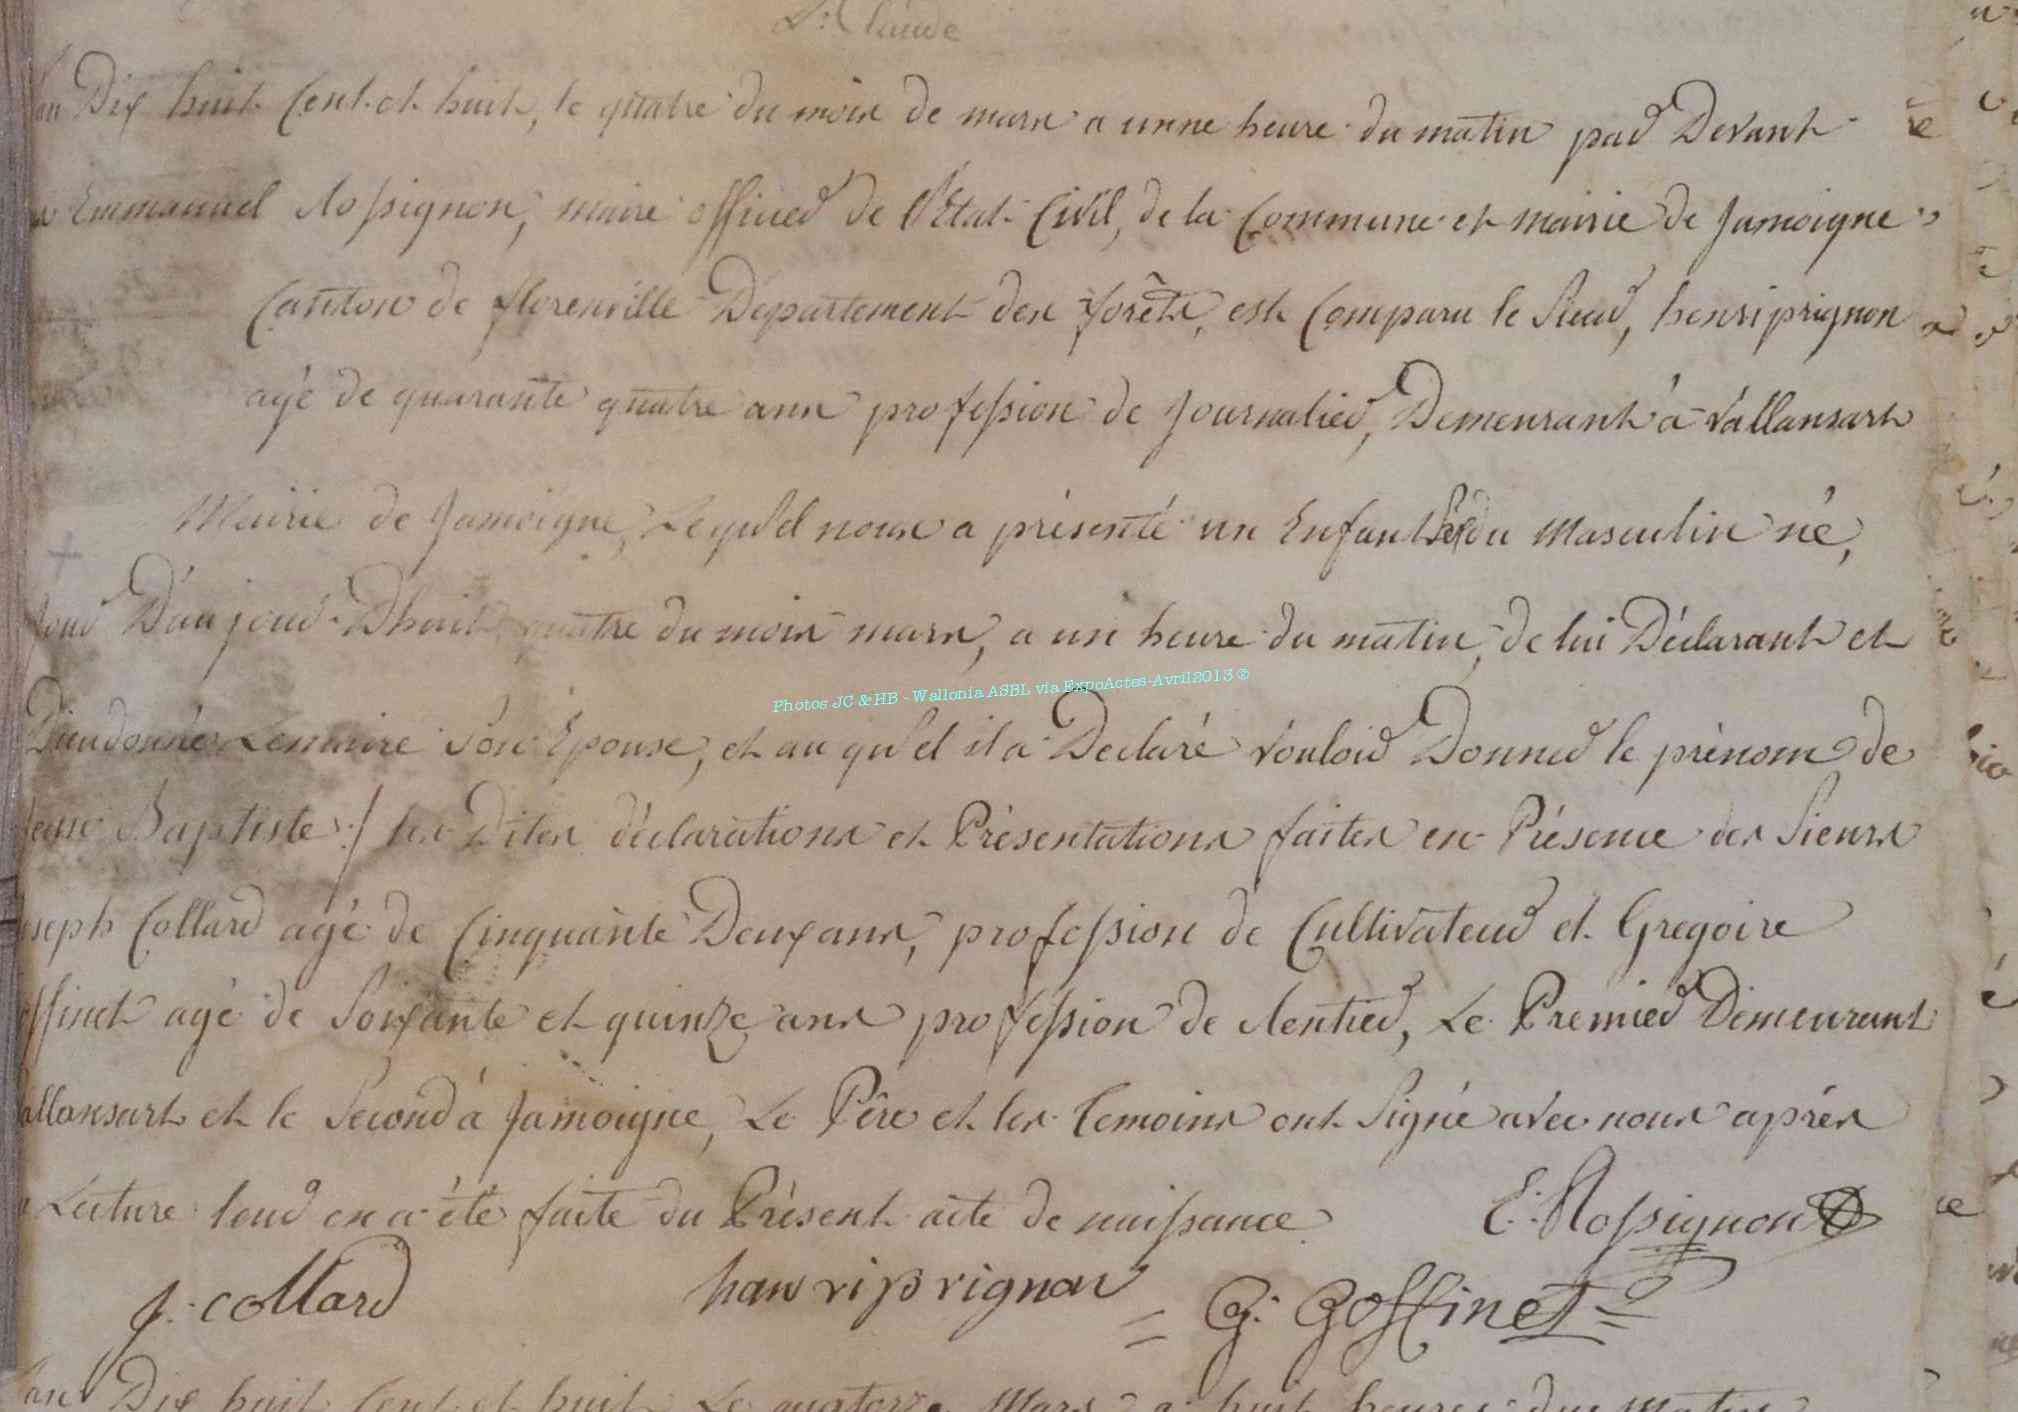 L: Claude
an Dix huit Cent et huit, le quatre du mois de mars a unne heure du matin par Devant
Emmanuel Rossignon, maire officier de l'État Civil, de la Commune et mairie de Jamoigne
Canton de florenville Département des forêts, est Comparu le Sieur, henri prignon
agé de quarante quatre ans profession de Journalier, Demeurant à vallansart
Mairie de Jamoigne, Lequ'el nous a présenté un Enfant Sexe du Masculin né,
jour D'aujour-Dhuit quatre du mois mars, a un heure du matin, de lui Déclarant et
Dieudonné Lemaire Son Épouse, et au qu'el il a Déclaré vouloir Donner le prénom de
Jean Baptiste ./ les Dites déclarations et Présentations faites en Présence des Sieurs
oseph Collard agé de Cinquante Deux ans, profession de Cultivateur et Gregoire
offinet agé de Soixante et quinze ans profession de Rentier, Le Premier Demeurant
allansart et le Second à Jamoigne, Le Père et les temoins ont Signé avec nous après
Lecture leur en a été faite du Présent acte de naissance. E: Rossignon
j. collard hanri prignon = G: Goffinet =
an Dix huit Cent et huit Le quatorze Mars a huit heures du Matin
Photos JC & HB - Wallonia ASBL via ExpoActes-Avril2013 ®